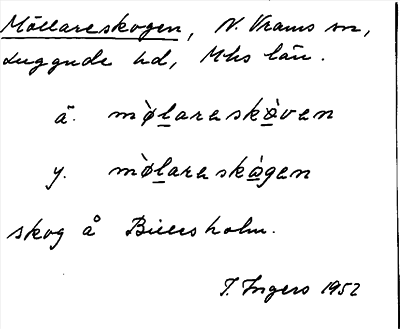 Möllareskogen, N. Vrams sn,
Luggude hd, Mhs län.
ä. mø̀lareskå̀ven
y. mø̀lareskå̀gen
skog å Billesholm.
I. Ingers 1952